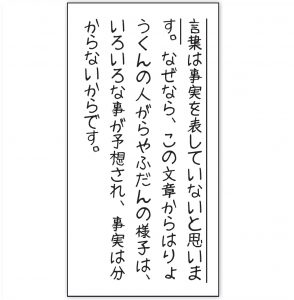 言葉は事実を表していないと思いま
す。なぜなら、この文章からはりょ
うくんの人がらやふだんの様子は、
いろいろな事が予想され、事実は分
からないからです。